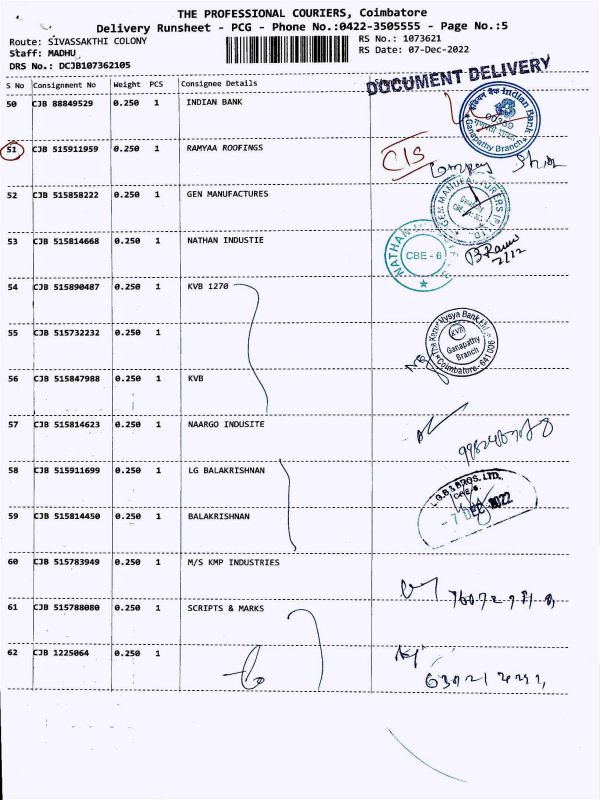 THE PROFESSIONAL COURIERS, Coimbatore
Delivery Runsheet - PCG - Phone No.:0422-3505555 - Page No.:5
Route: SIVASSAKTHI COLONY
RS No.: 1073621
Staff: MADHU
RS Date: 07-Dec-2022
DRS No.: DCJB107362105
DOCUMENT DELIVERY
S No Consignment No Weight PCS Consignee Details
50 CJB 88849529 0.250 1 INDIAN BANK
Indian Bank
Ganapathy Branch
51 CJB 515911959 0.250 1 RAMYAA ROOFINGS
CIS
Company
52 CJB 515858222 0.250 1 GEN MANUFACTURES
GEN MANUFACTURERS
53 CJB 515814668 0.250 1 NATHAN INDUSTIE
NATHAN
CBE - 6
54 CJB 515890487 0.250 1 KVB 1270
55 CJB 515732232 0.250 1
The Karur Vysya Bank Ltd
KVB
Ganapathy
Branch
Coimbatore - 641 006
56 CJB 515847988 0.250 1 KVB
57 CJB 515814623 0.250 1 NAARGO INDUSITE
58 CJB 515911699 0.250 1 LG BALAKRISHNAN
L.G.B & BROS. LTD.,
- 7 DEC 2022
59 CJB 515814450 0.250 1 BALAKRISHNAN
60 CJB 515783949 0.250 1 M/S KMP INDUSTRIES
61 CJB 515788080 0.250 1 SCRIPTS & MARKS
62 CJB 1225064 0.250 1